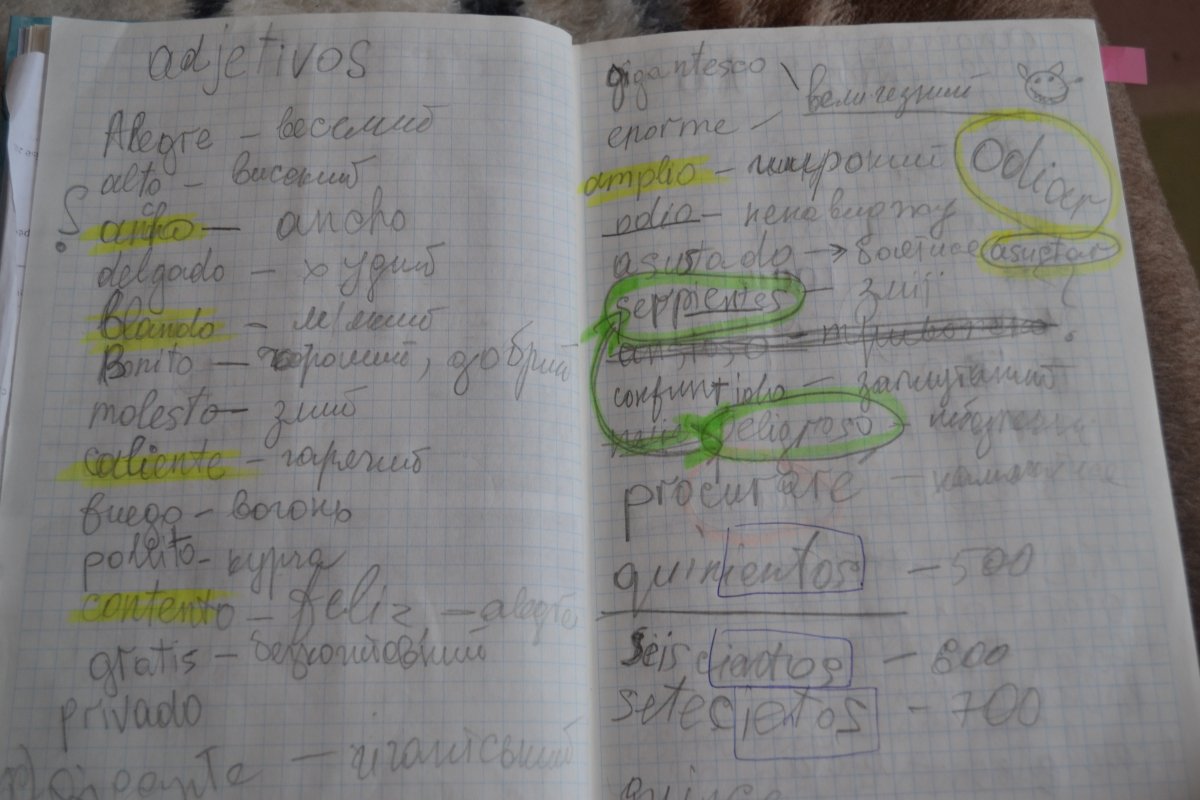 adjetivos
Alegre – веселий
alto – високий
ancho – ancho
delgado – худий
blando – м'який
Bonito – хороший, добрий
molesto – злий
caliente – гарячий
fuego – вогонь
pollito – курча
contento – feliz – alegre
gratis – безкоштовний
privado
– гігантський
gigantesco
величезний
enorme –
amplio – широкий
Odiar
odio – ненавиджу
asustado → боїтися asustar
serpientes – змії
confuntido – заплутаний
peligroso –
procurare –
quinientos – 500
Seiscientos – 600
setecientos – 700
quince